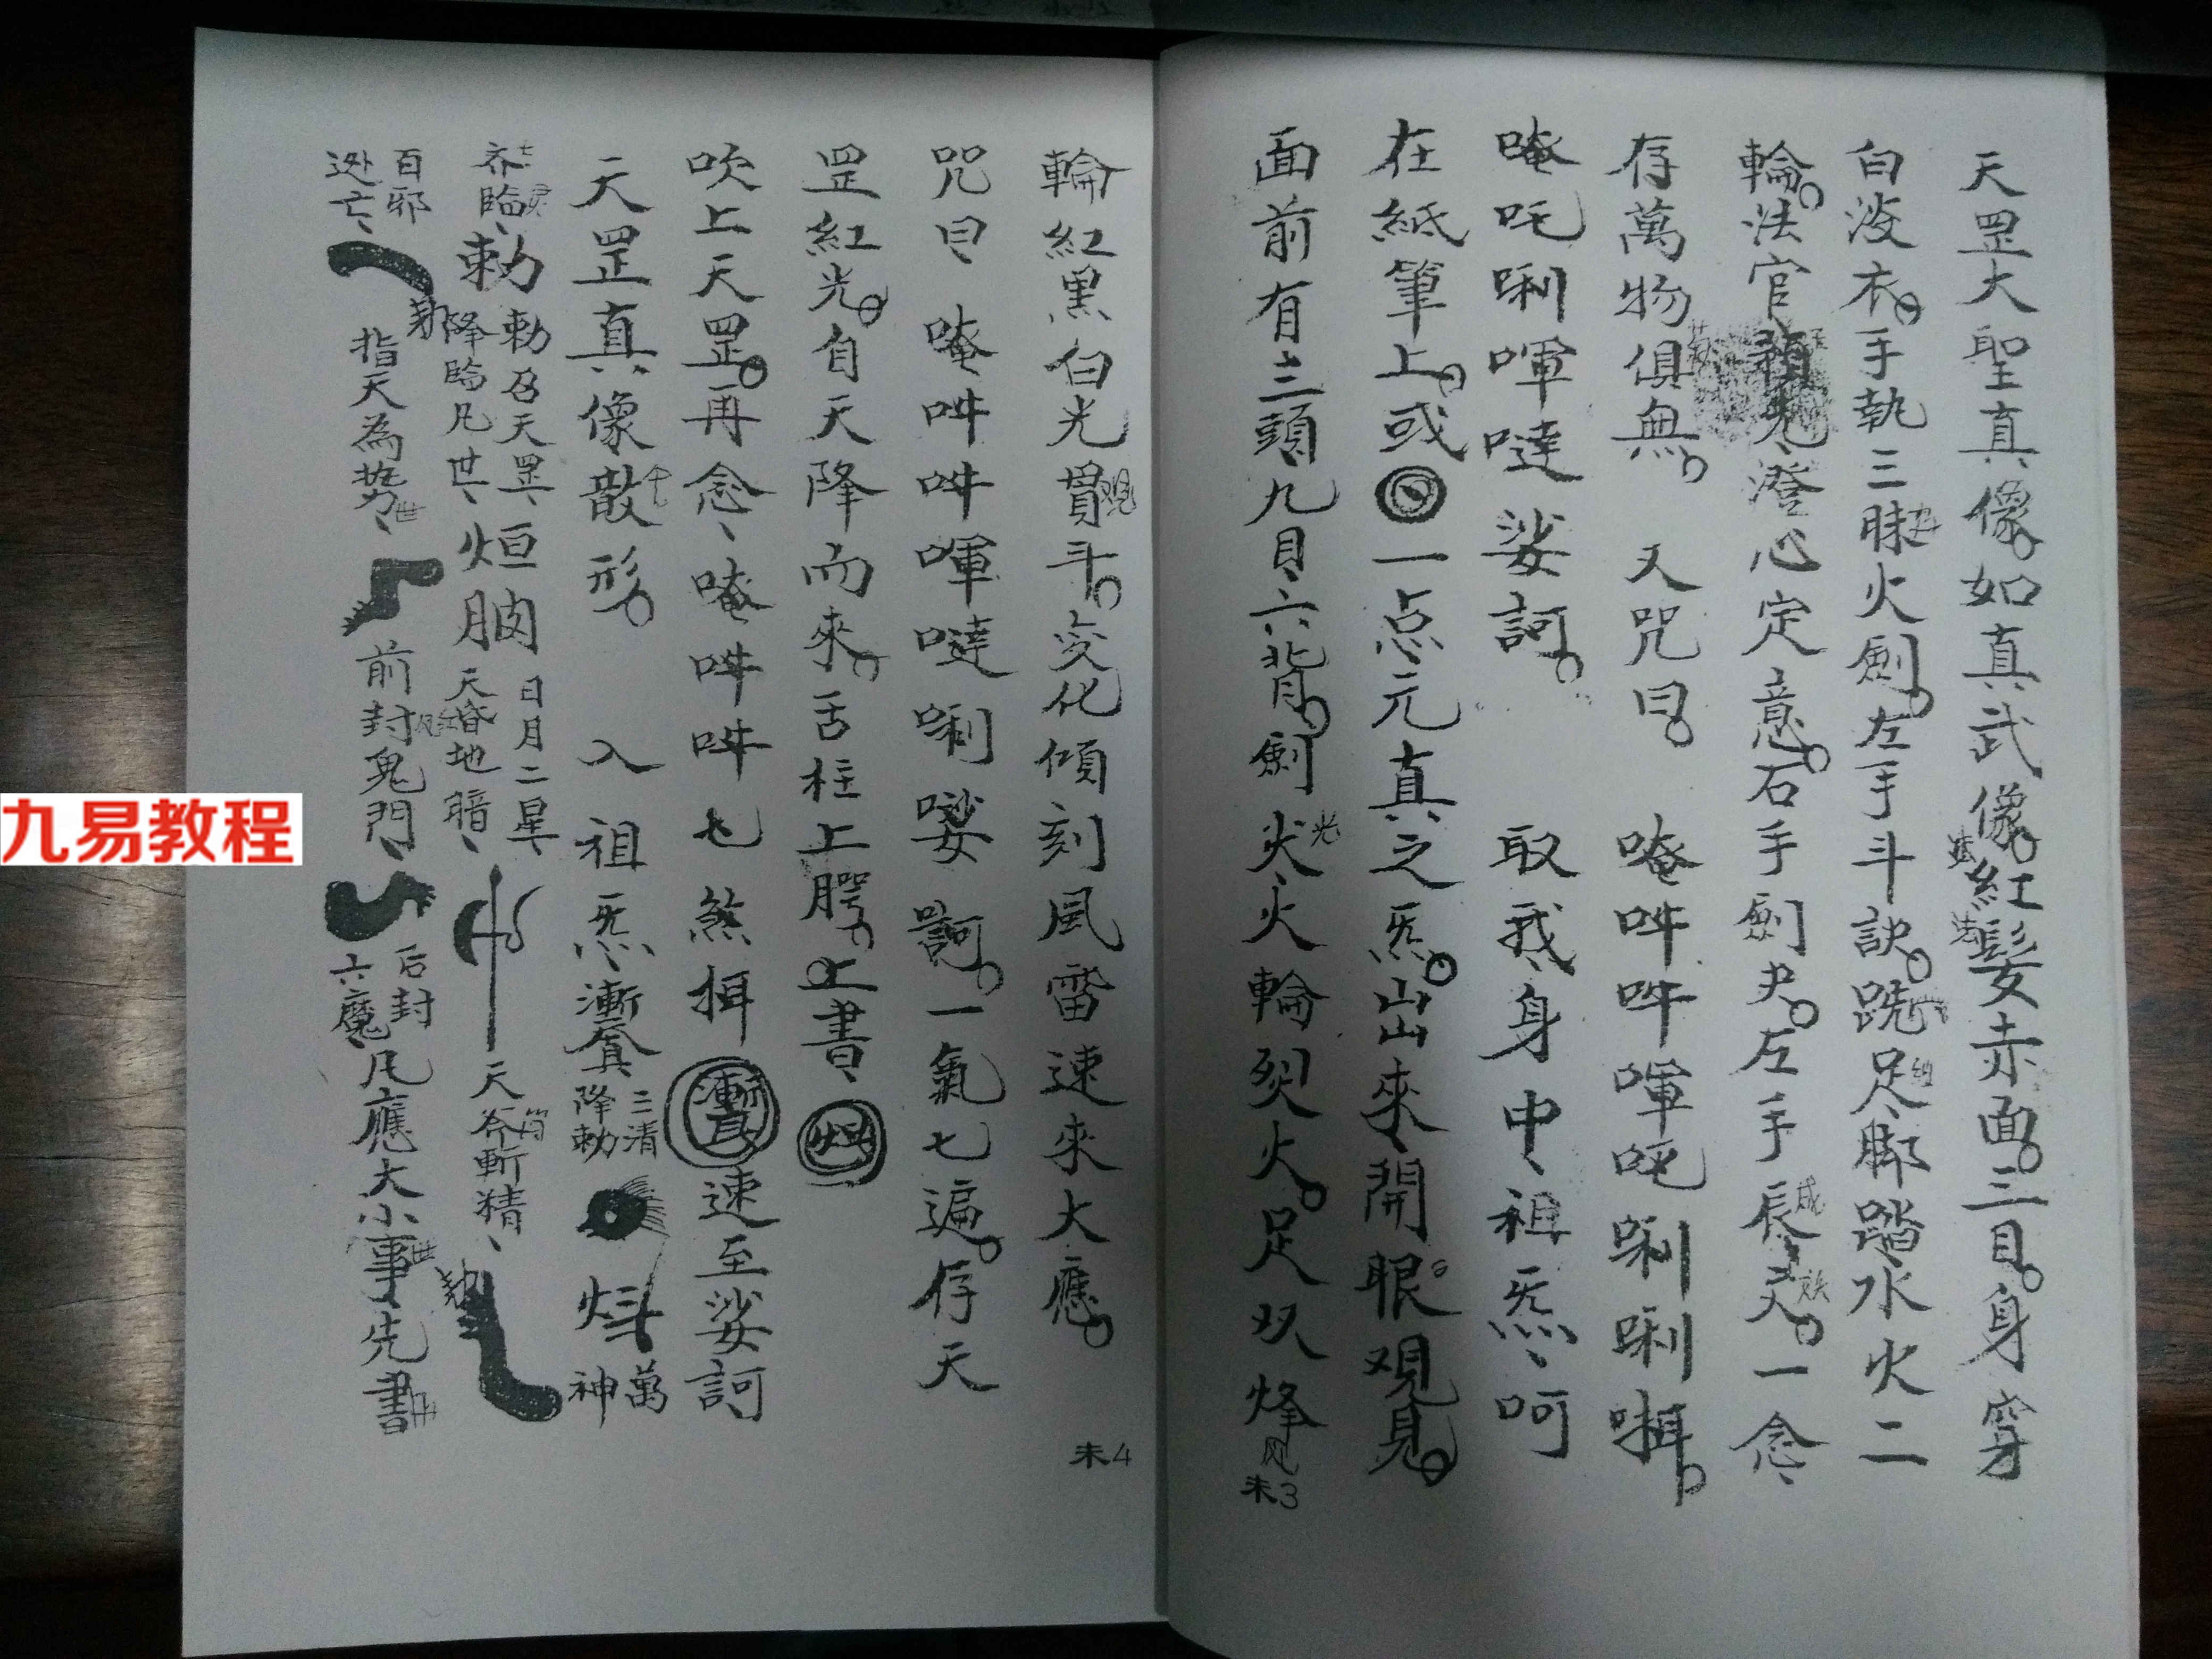 天罡大聖真像如真武像紅髮赤面三目身穿
白波衣手執三昧火劍左手斗訣跣足脚踏水火二
輪法官澄心定意石手劍左手辰一念
存萬物俱無又咒曰唵吽吽喗唎唎
唵吒唎喗噠娑訶取我身中祖炁呵
在紙筆上或一点元真之炁出來開眼觀見
面前有三頭九目六背劍火火輪烈火足双烽
未3
輪紅黑白光貫斗变化傾刻風雷速來大應
咒曰唵吽吽喗噠唎一氣七遍存天
罡紅光自天降而來舌柱上腭止書
吹上天罡再念唵吽吽七煞揖速至娑訶
天罡真像散形入祖炁降勅三清神萬
齐臨勅勅召天罡降臨凡世日月二星天昏地暗天斧斬精
百邪逃亡指天為勢前封鬼門后封六魔凡應大小事先書
未4
九易教程